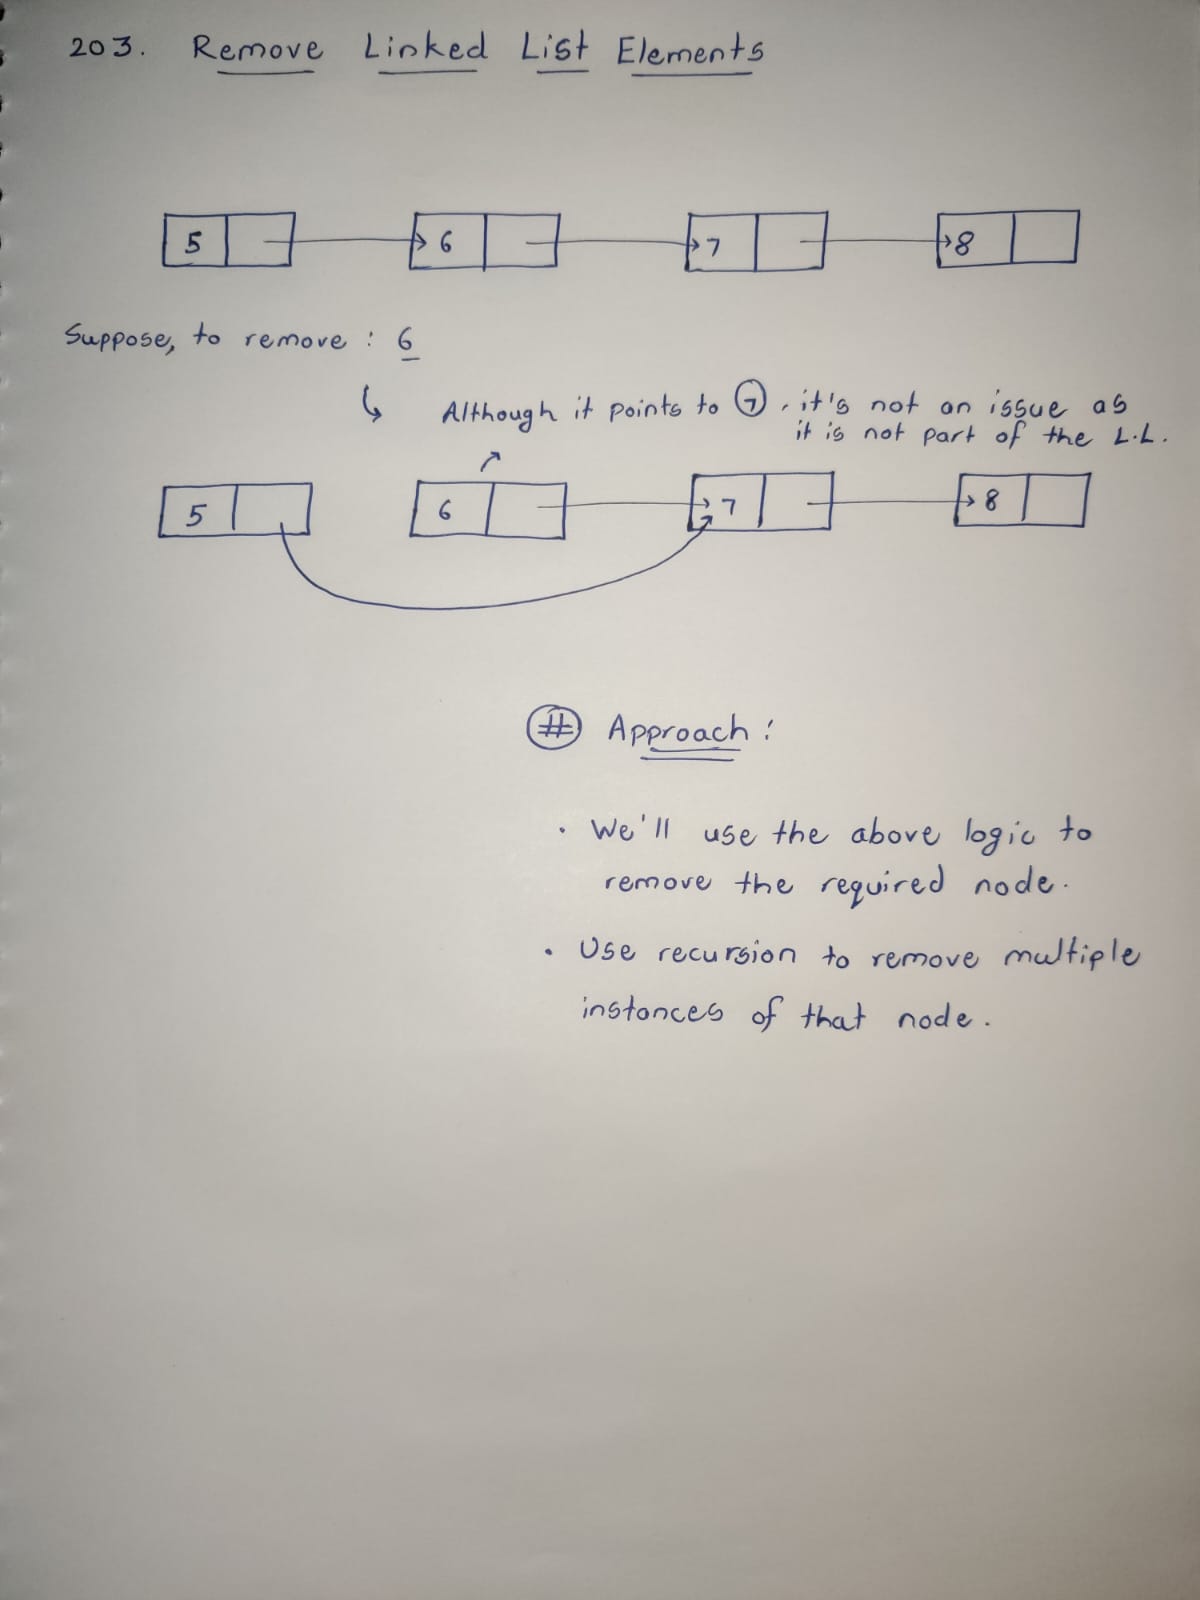 203. Remove Linked List Elements
5 6 7 8
Suppose, to remove : 6
Although it points to 7, it's not an issue as
it is not part of the L.L.
5 6 7 8
# Approach :
• We'll use the above logic to
remove the required node.
• Use recursion to remove multiple
instances of that node.